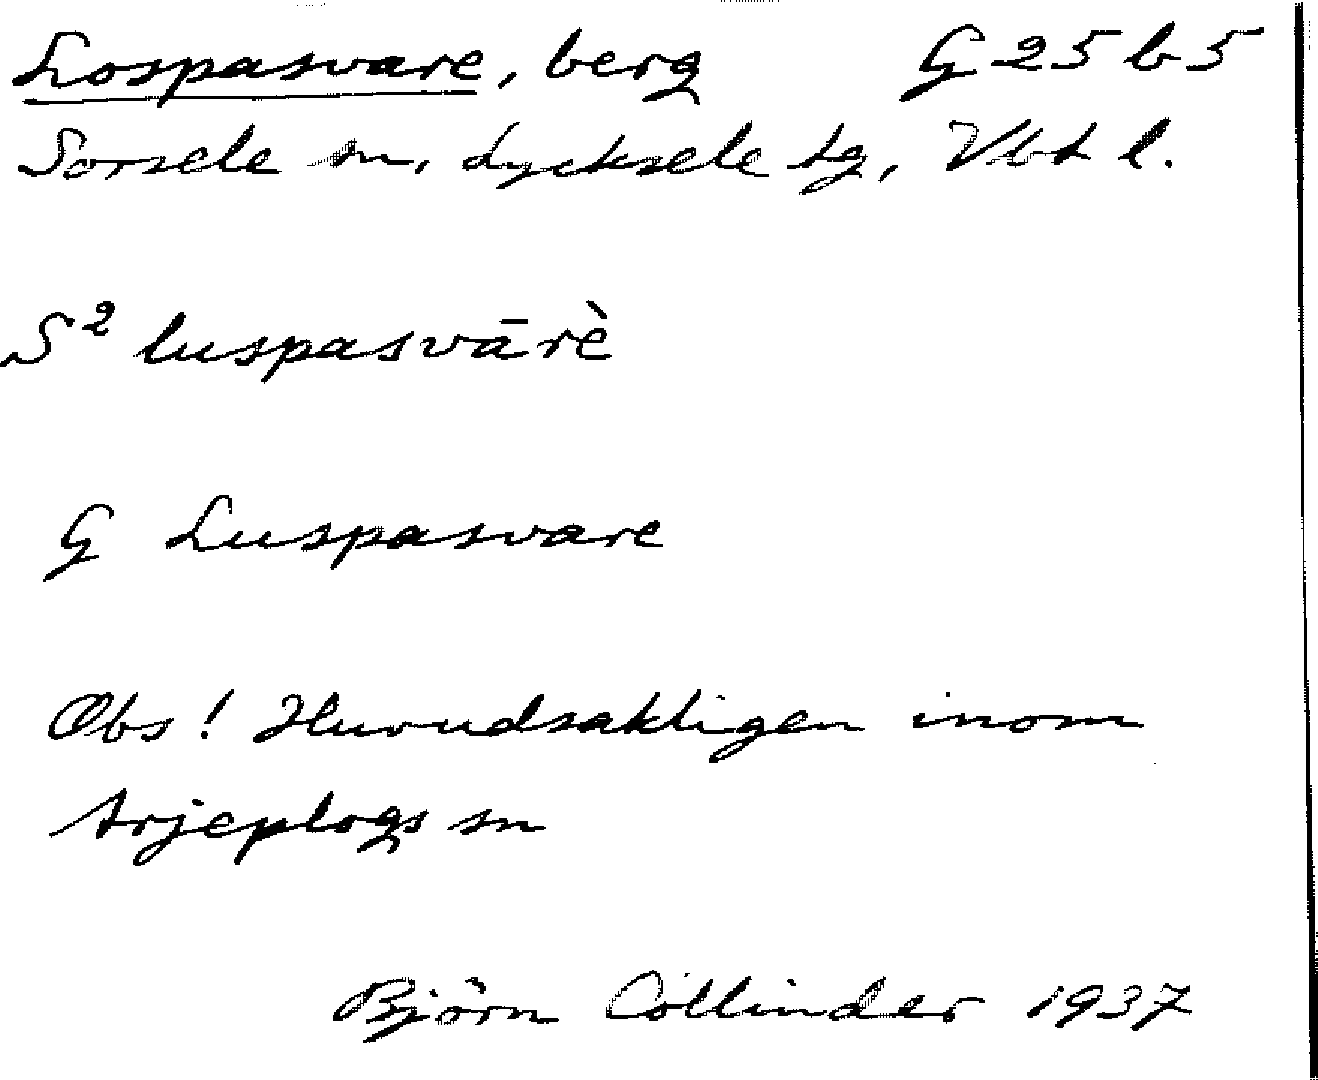 Lospasvare, berg G 25 b 5
Sorsele sn, Lycksele tg, Vbt l.
S² luspasvārè
G Luspasvare
Obs! Huvudsakligen inom
Arjeplogs sn
Björn Collinder 1937